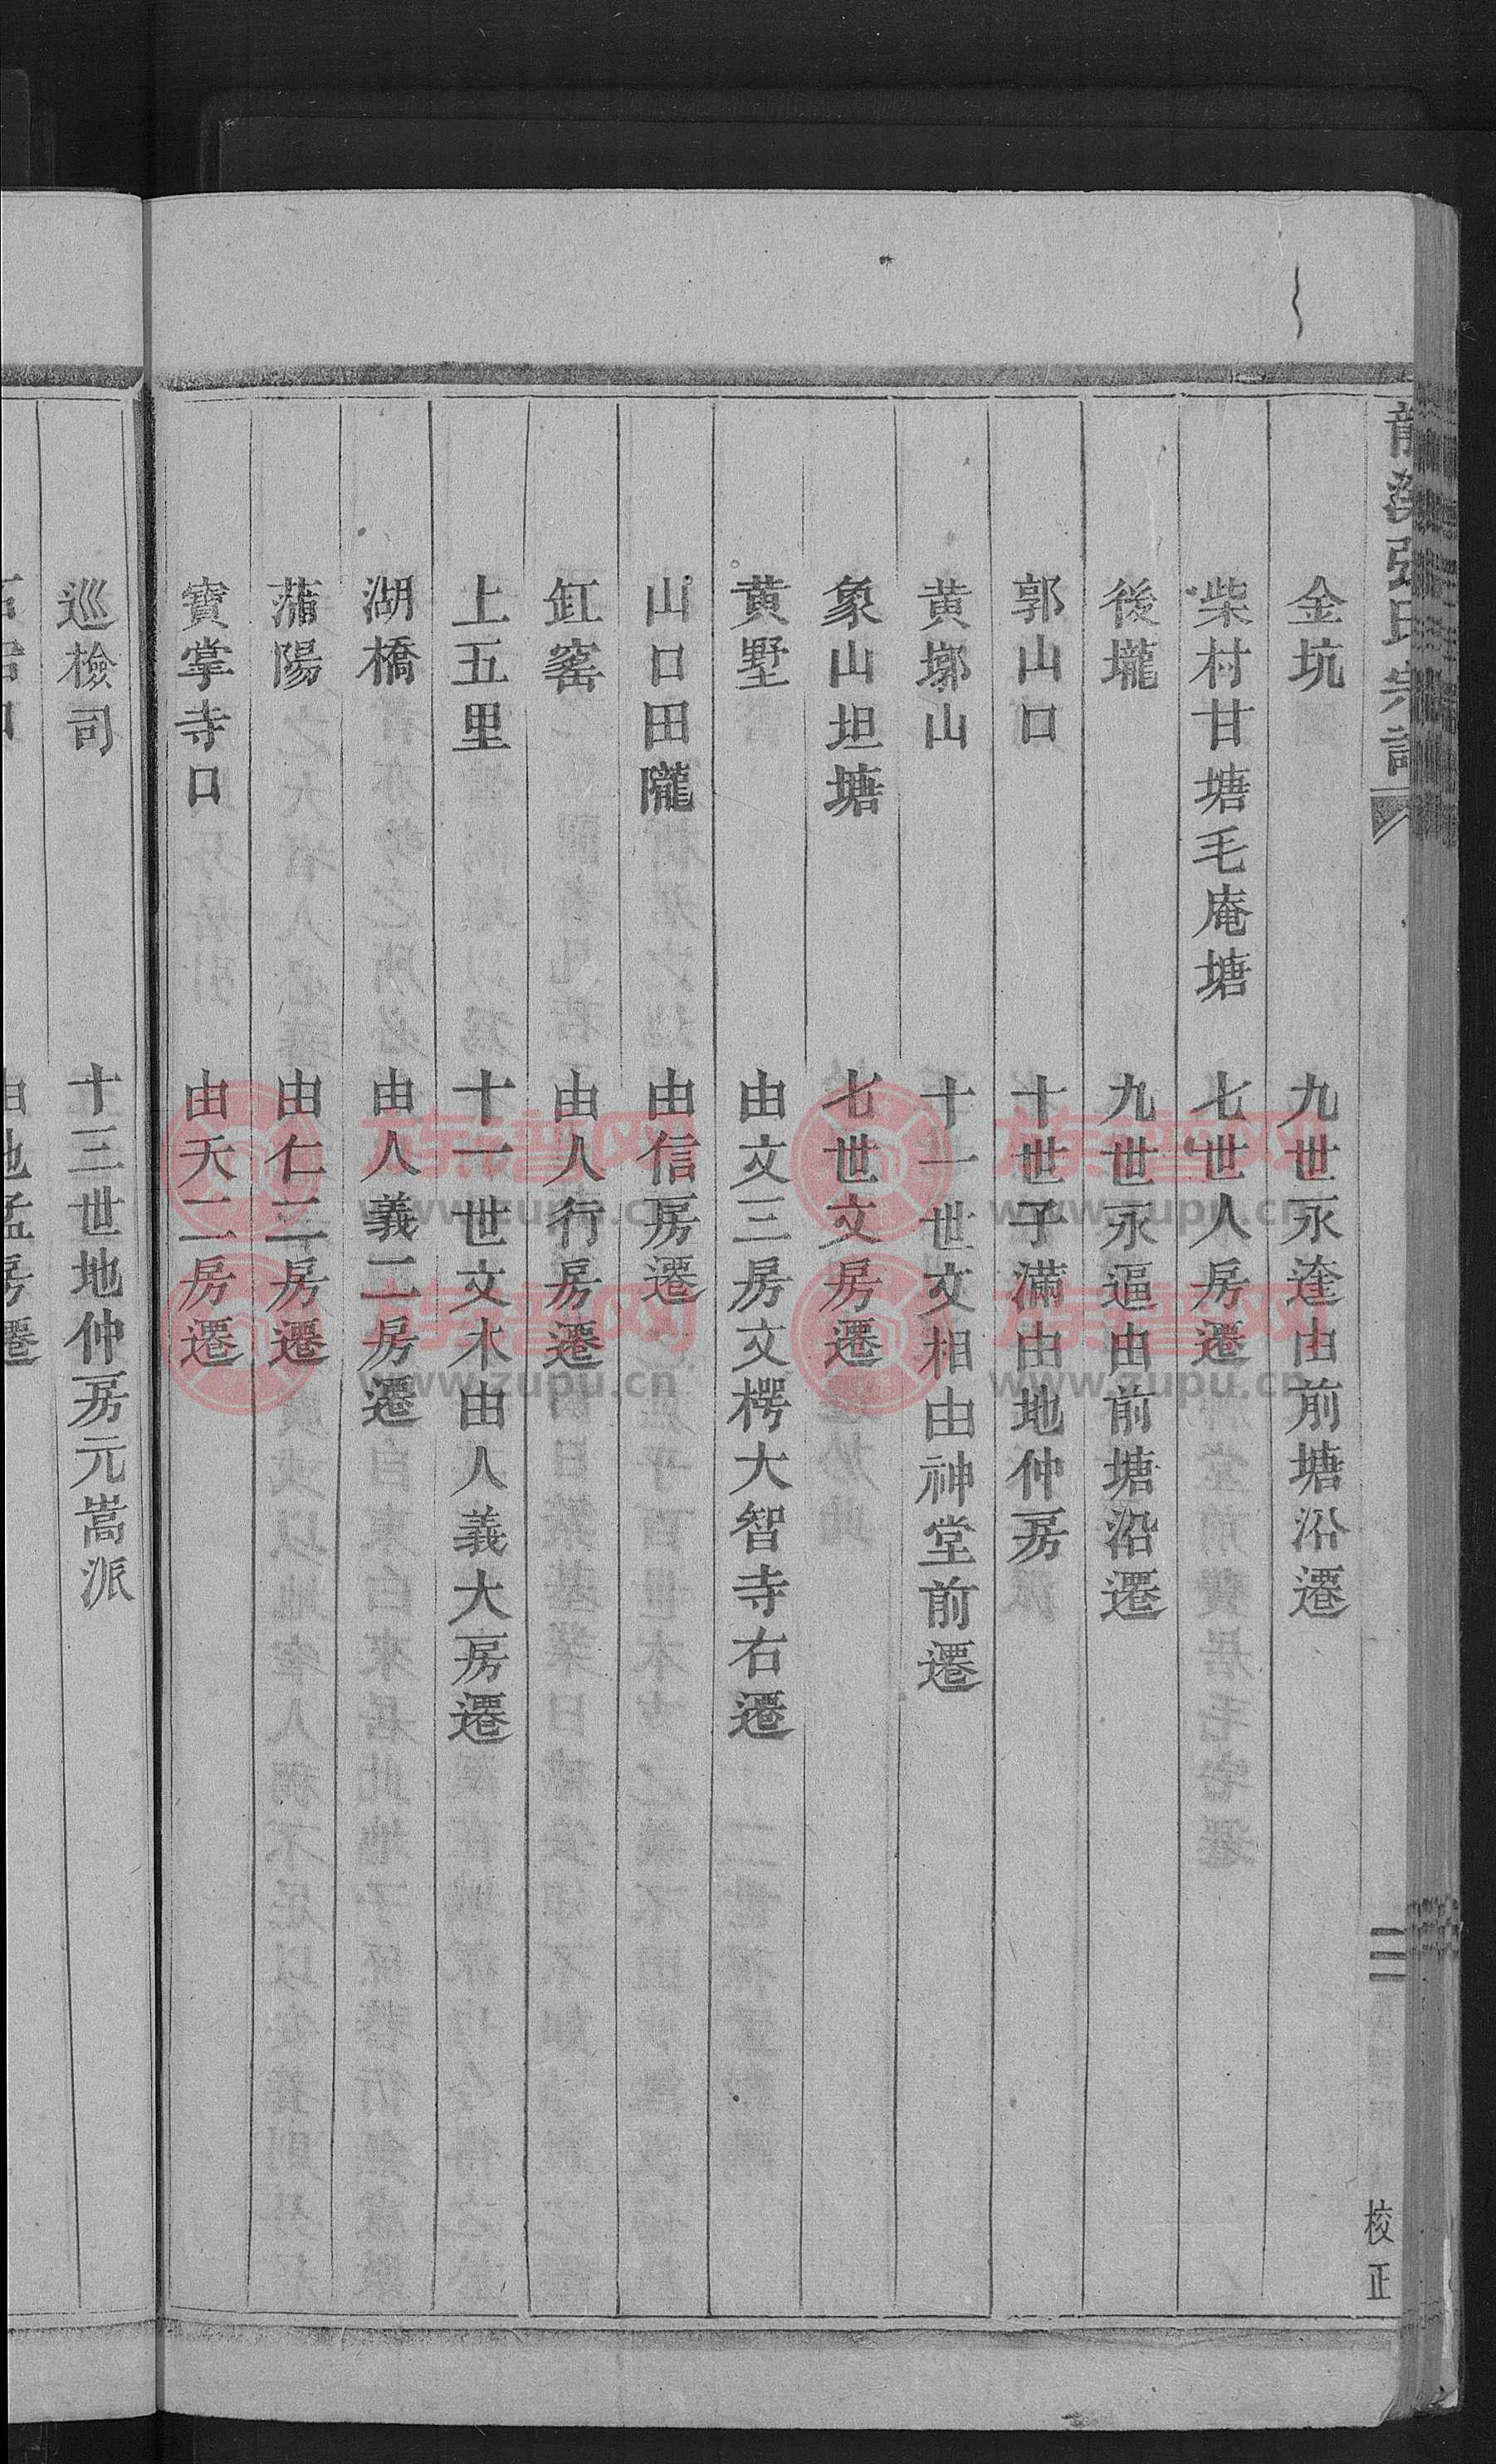 龍溪張氏宗譜
二
校正
金坑 九世永逵由前塘沿遷
柴村甘塘毛庵塘 七世人房遷
後壠 九世永逼由前塘沿遷
郭山口 十世子滿由地仲房
黄塝山 十一世文相由神堂前遷
象山坦塘 七世文房遷
黄墅 由文三房文楞大智寺右遷
山口田隴 由信房遷
缸窰 由人行房遷
上五里 十一世文木由人義大房遷
湖橋 由人義二房遷
蒲陽 由仁二房遷
寶掌寺口 由天二房遷
巡檢司 十三世地仲房元嵩派
由地孟房遷
族譜网
www.zupu.cn
族譜网
www.zupu.cn
族譜网
www.zupu.cn
族譜网
www.zupu.cn